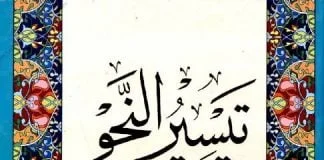 تَيسِيرُ النَّحو